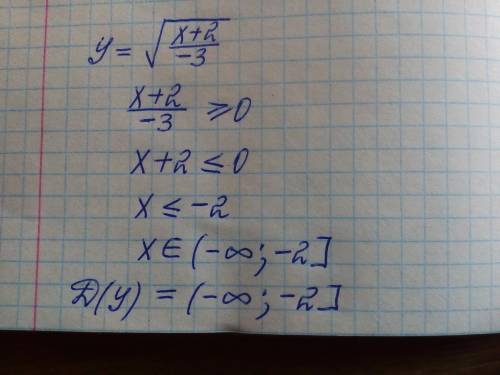 y = √((x+2)/(-3))
(x+2)/(-3) ⩾ 0
x+2 ≤ 0
x ≤ -2
x ∈ (-∞; -2]
D(y) = (-∞; -2]